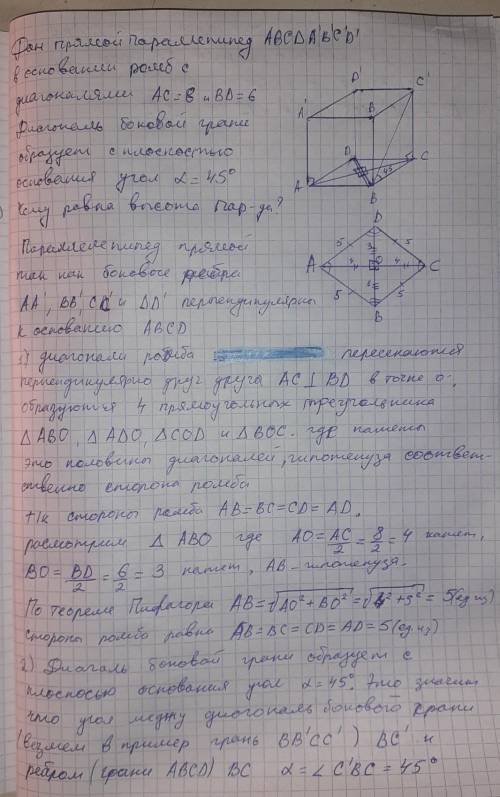 Дан прямой параллепипед ABCDA'B'C'D'
в основании ромб с
диагоналями AC=8 и BD=6
Диагональ боковой грани
образует с плоскостью
основания угол α=45°
Чему равна высота пар-да?
D'
C'
A'
B
D
C
A
45
B
Параллелепипед прямой
так как боковые ребра
AA', BB', CC' и DD' перпендикулярны
к основанию ABCD
D
5
5
3
A
4
O
4
C
3
5
5
B
1) диагонали ромба пересекаются
перпендикулярно друг друга AC⊥BD в точке O,
образуются 4 прямоугольных треугольника
△ABO, △ADO, △COD и △BOC. где катеты
это половины диагоналей, гипотенуза соответ-
ственно сторона ромба
т/к стороны ромба AB=BC=CD=AD,
расмотрим △ ABO где AO=AC/2=8/2=4 катет,
BO=BD/2=6/2=3 катет, AB-гипотенуза.
По теореме Пифагора AB=√AO²+BO²=√4²+3²=5(ед.из)
стороны ромба равна AB=BC=CD=AD=5(ед.из)
2) Диагаль боковой грани образует с
плоскосью основания угол α=45°. Это значит
что угол между диагональ бокового грани
(везмем в пример грань BB'CC') BC' и
ребром (грани ABCD) BC α=∠C'BC=45°